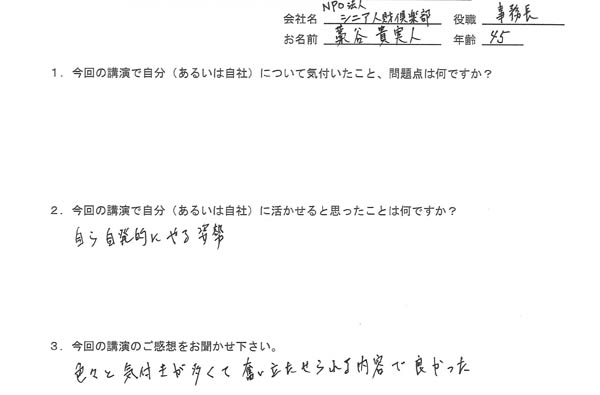 NPO法人
会社名 シニア人財倶楽部 役職 事務長
お名前 藁谷 貴実人 年齢 45
1．今回の講演で自分（あるいは自社）について気付いたこと、問題点は何ですか？
2．今回の講演で自分（あるいは自社）に活かせると思ったことは何ですか？
自ら自発的にやる姿勢
3．今回の講演のご感想をお聞かせ下さい。
色々と気付きが多くて奮い立たせられる内容で良かった